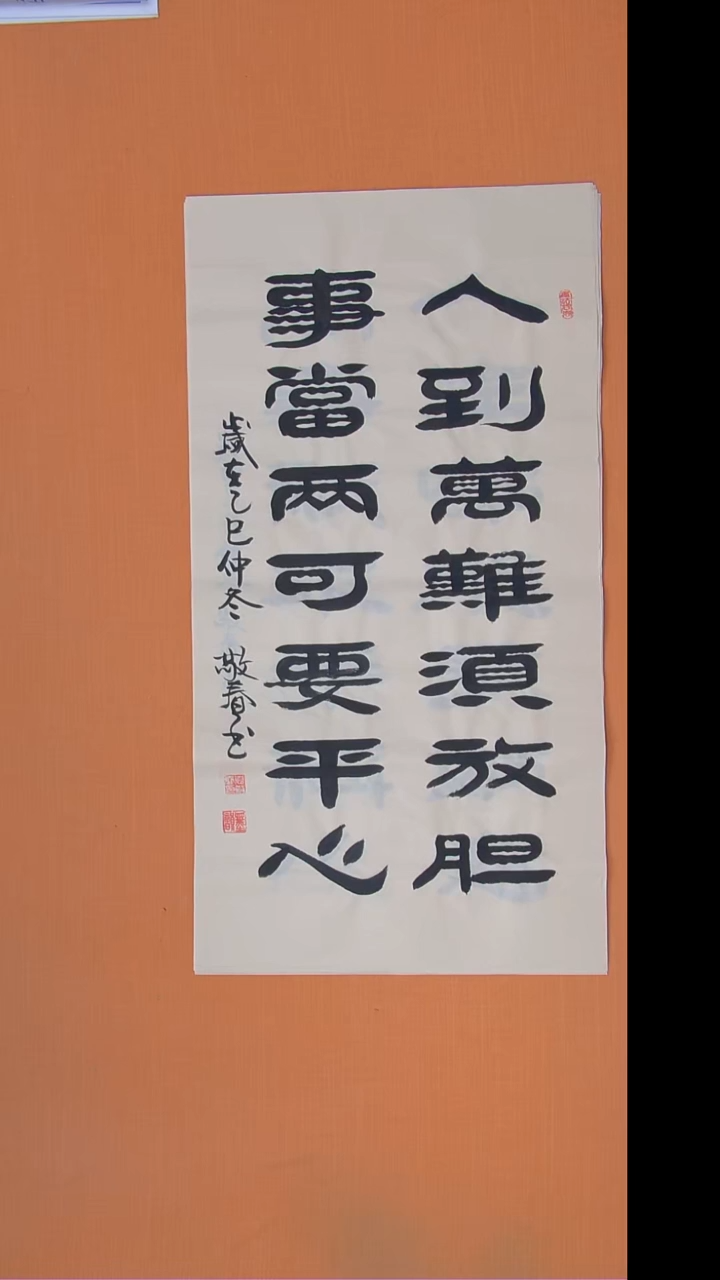 人到萬難須放胆
事當两可要平心
歲在乙巳仲冬 敬春书